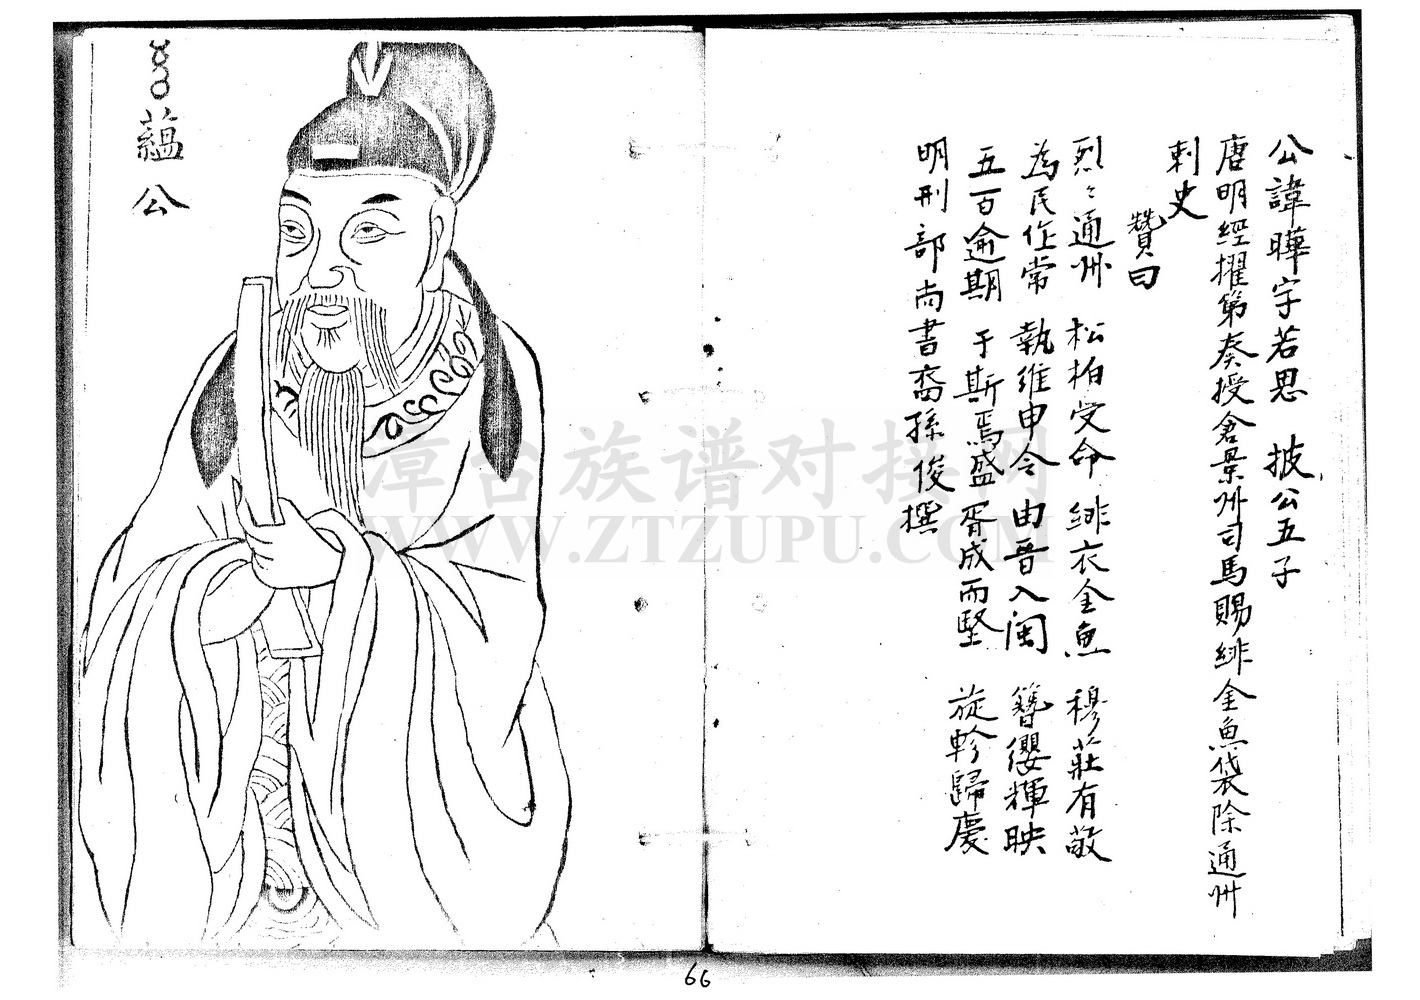 公諱曄字若思 披公五子
唐明經擢第奏授倉景州司馬賜緋金魚袋除通州
刺史
贊曰
烈〻通州 松柏受命 緋衣金魚 穆莊有敬
為民作常 執維申令 由晉入閩 簪纓輝映
五百逾期 于斯焉盛 胥成而堅 旋軫歸慶
明刑部尚書裔孫俊撰
蘊公
漳台族谱对接网
WWW.ZTZUPU.COM
66